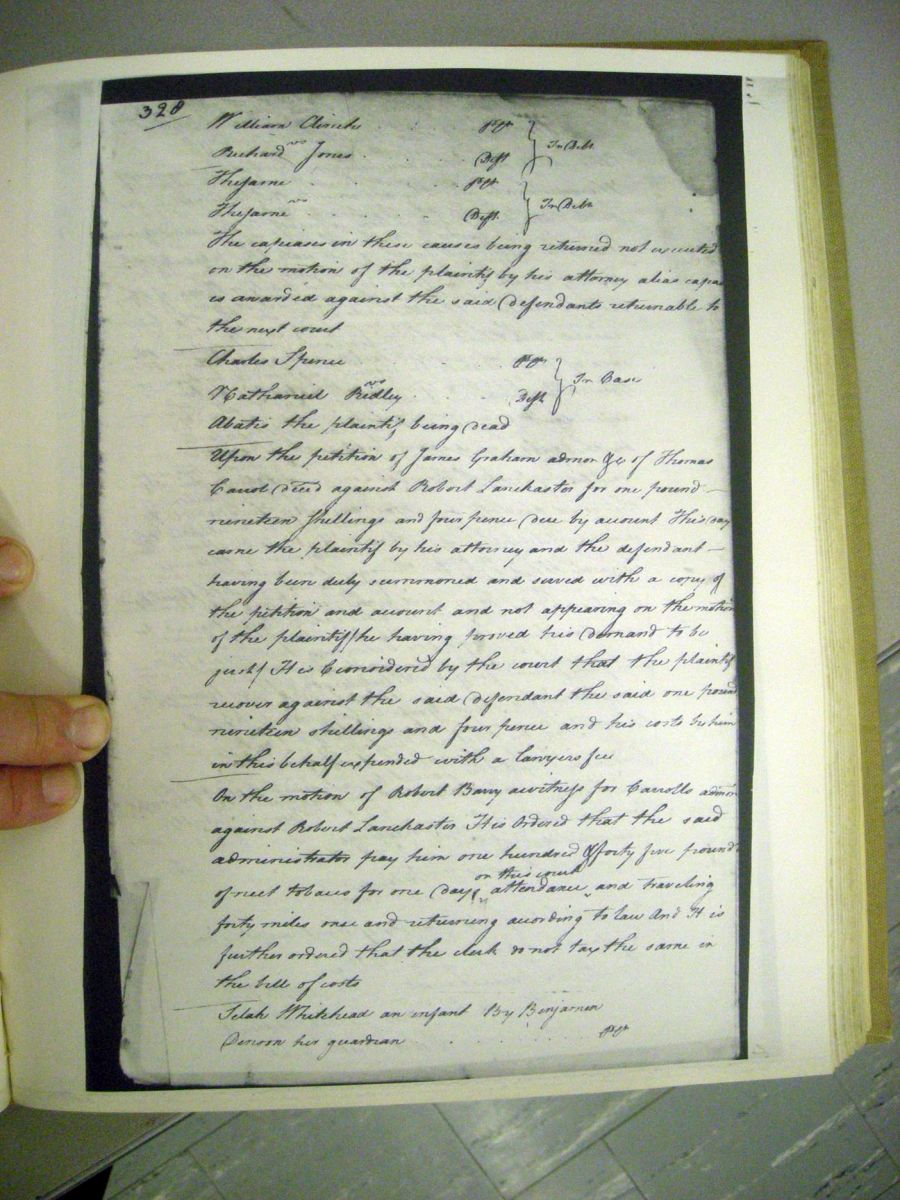 328
William Clinch . . . Plt } In Debt
vs
Richard Jones . . . Deft
The same . . . Plt } In Debt
vs
The same . . . Deft
The capiases in these causes being returned not executed
on the motion of the plaintif by his attorney alias capias
is awarded against the said Defendants returnable to
the next court
Charles Spence . . . Plt } In Case
vs
Nathaniel Ridley . . . Deft
Abates the plaintif being Dead
Upon the petition of James Graham admor &c of Thomas
Carrol Decd against Robert Lanchaster for one pound
nineteen shillings and four pence Due by account This Day
came the plaintif by his attorney and the defendant
having been duly summoned and served with a copy of
the petition and account and not appearing on the motion
of the plaintif (he having proved his Demand to be
just) It is Considered by the court that the plaintif
recover against the said Defendant the said one pound
nineteen shillings and four pence and his costs by him
in this behalf expended with a lawyers fee
On the motion of Robert Barry a witness for Carrolls admor
against Robert Lanchaster It is Ordered that the said
administrator pay him one hundred & forty five pounds
on this court
of neet tobacco for one Days attendance and traveling
forty miles once and returning according to law And It is
further ordered that the clerk do not tax the same in
the bill of costs
Selah Whitehead an infant By Benjamin
Denson her guardian . . . Plt